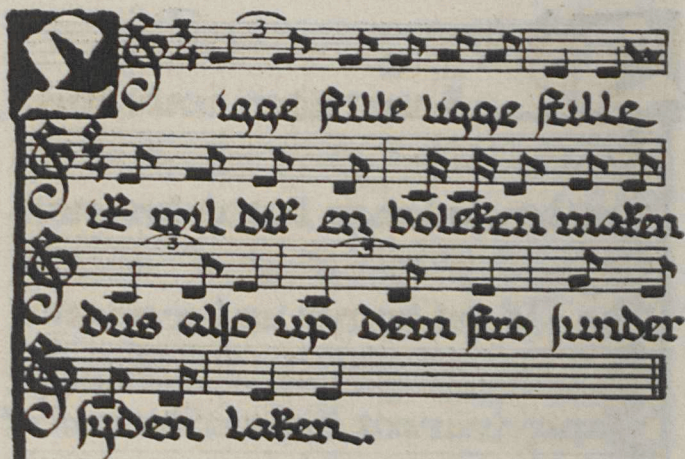 Ligge stille ligge stille
ik wil dik en boleken maken
dus also up dem stro sunder
syden laken.